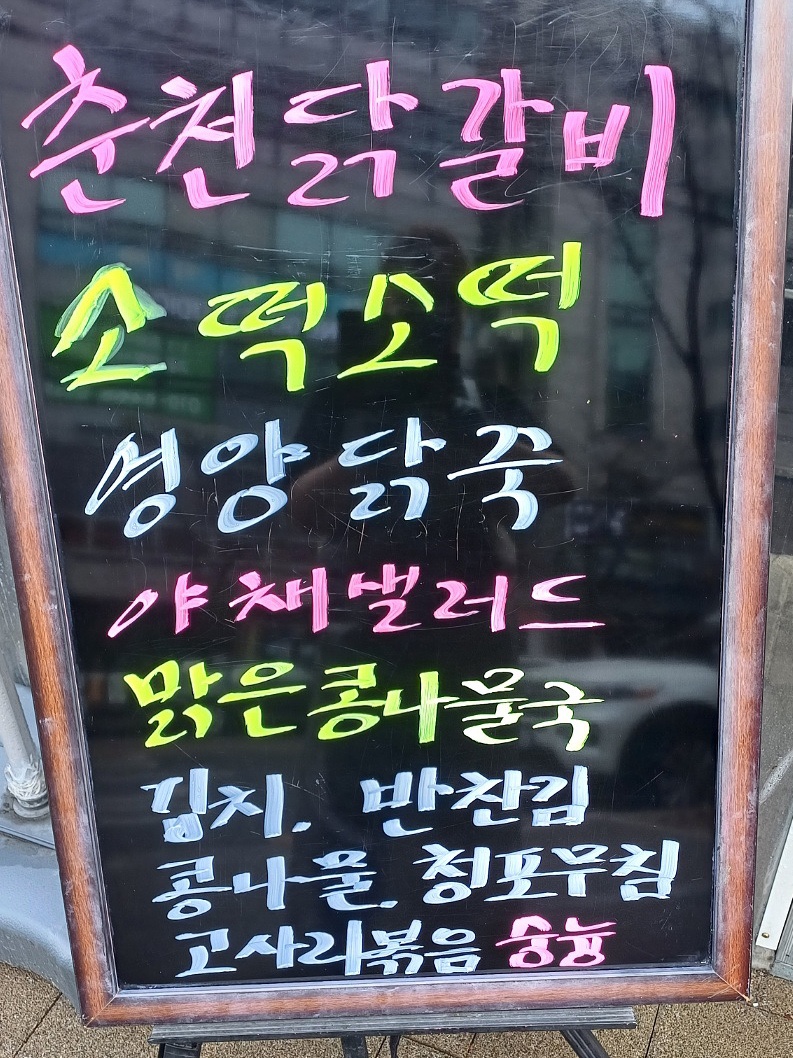 춘천닭갈비
소떡소떡
영양닭죽
야채샐러드
맑은콩나물국
김치. 반찬김
콩나물. 청포무침
고사리볶음 숭늉